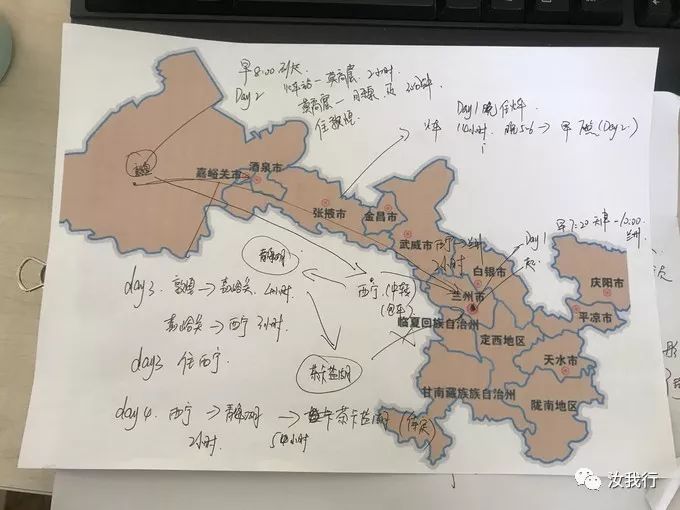 早8:00到达
Day 2 火车站—莫高窟 2小时
莫高窟—月牙泉
住敦煌
Day 1 晚 住火车
火车 14小时 晚5-6→早 (Day 2)
早7:20天津-10:00
兰州
Day 1
敦煌
嘉峪关市
酒泉市
张掖市
金昌市
武威市
西宁 兰州
2小时
白银市
兰州市
临夏回族自治州
定西地区
庆阳市
平凉市
天水市
陇南地区
甘南藏族族自治州
青海湖
西宁(中转)
(包车)
茶卡盐湖
day 3 敦煌→嘉峪关 4小时
嘉峪关→西宁 3小时
day3 住西宁
day 4 西宁→青海湖→茶卡盐湖
2小时
汝我行